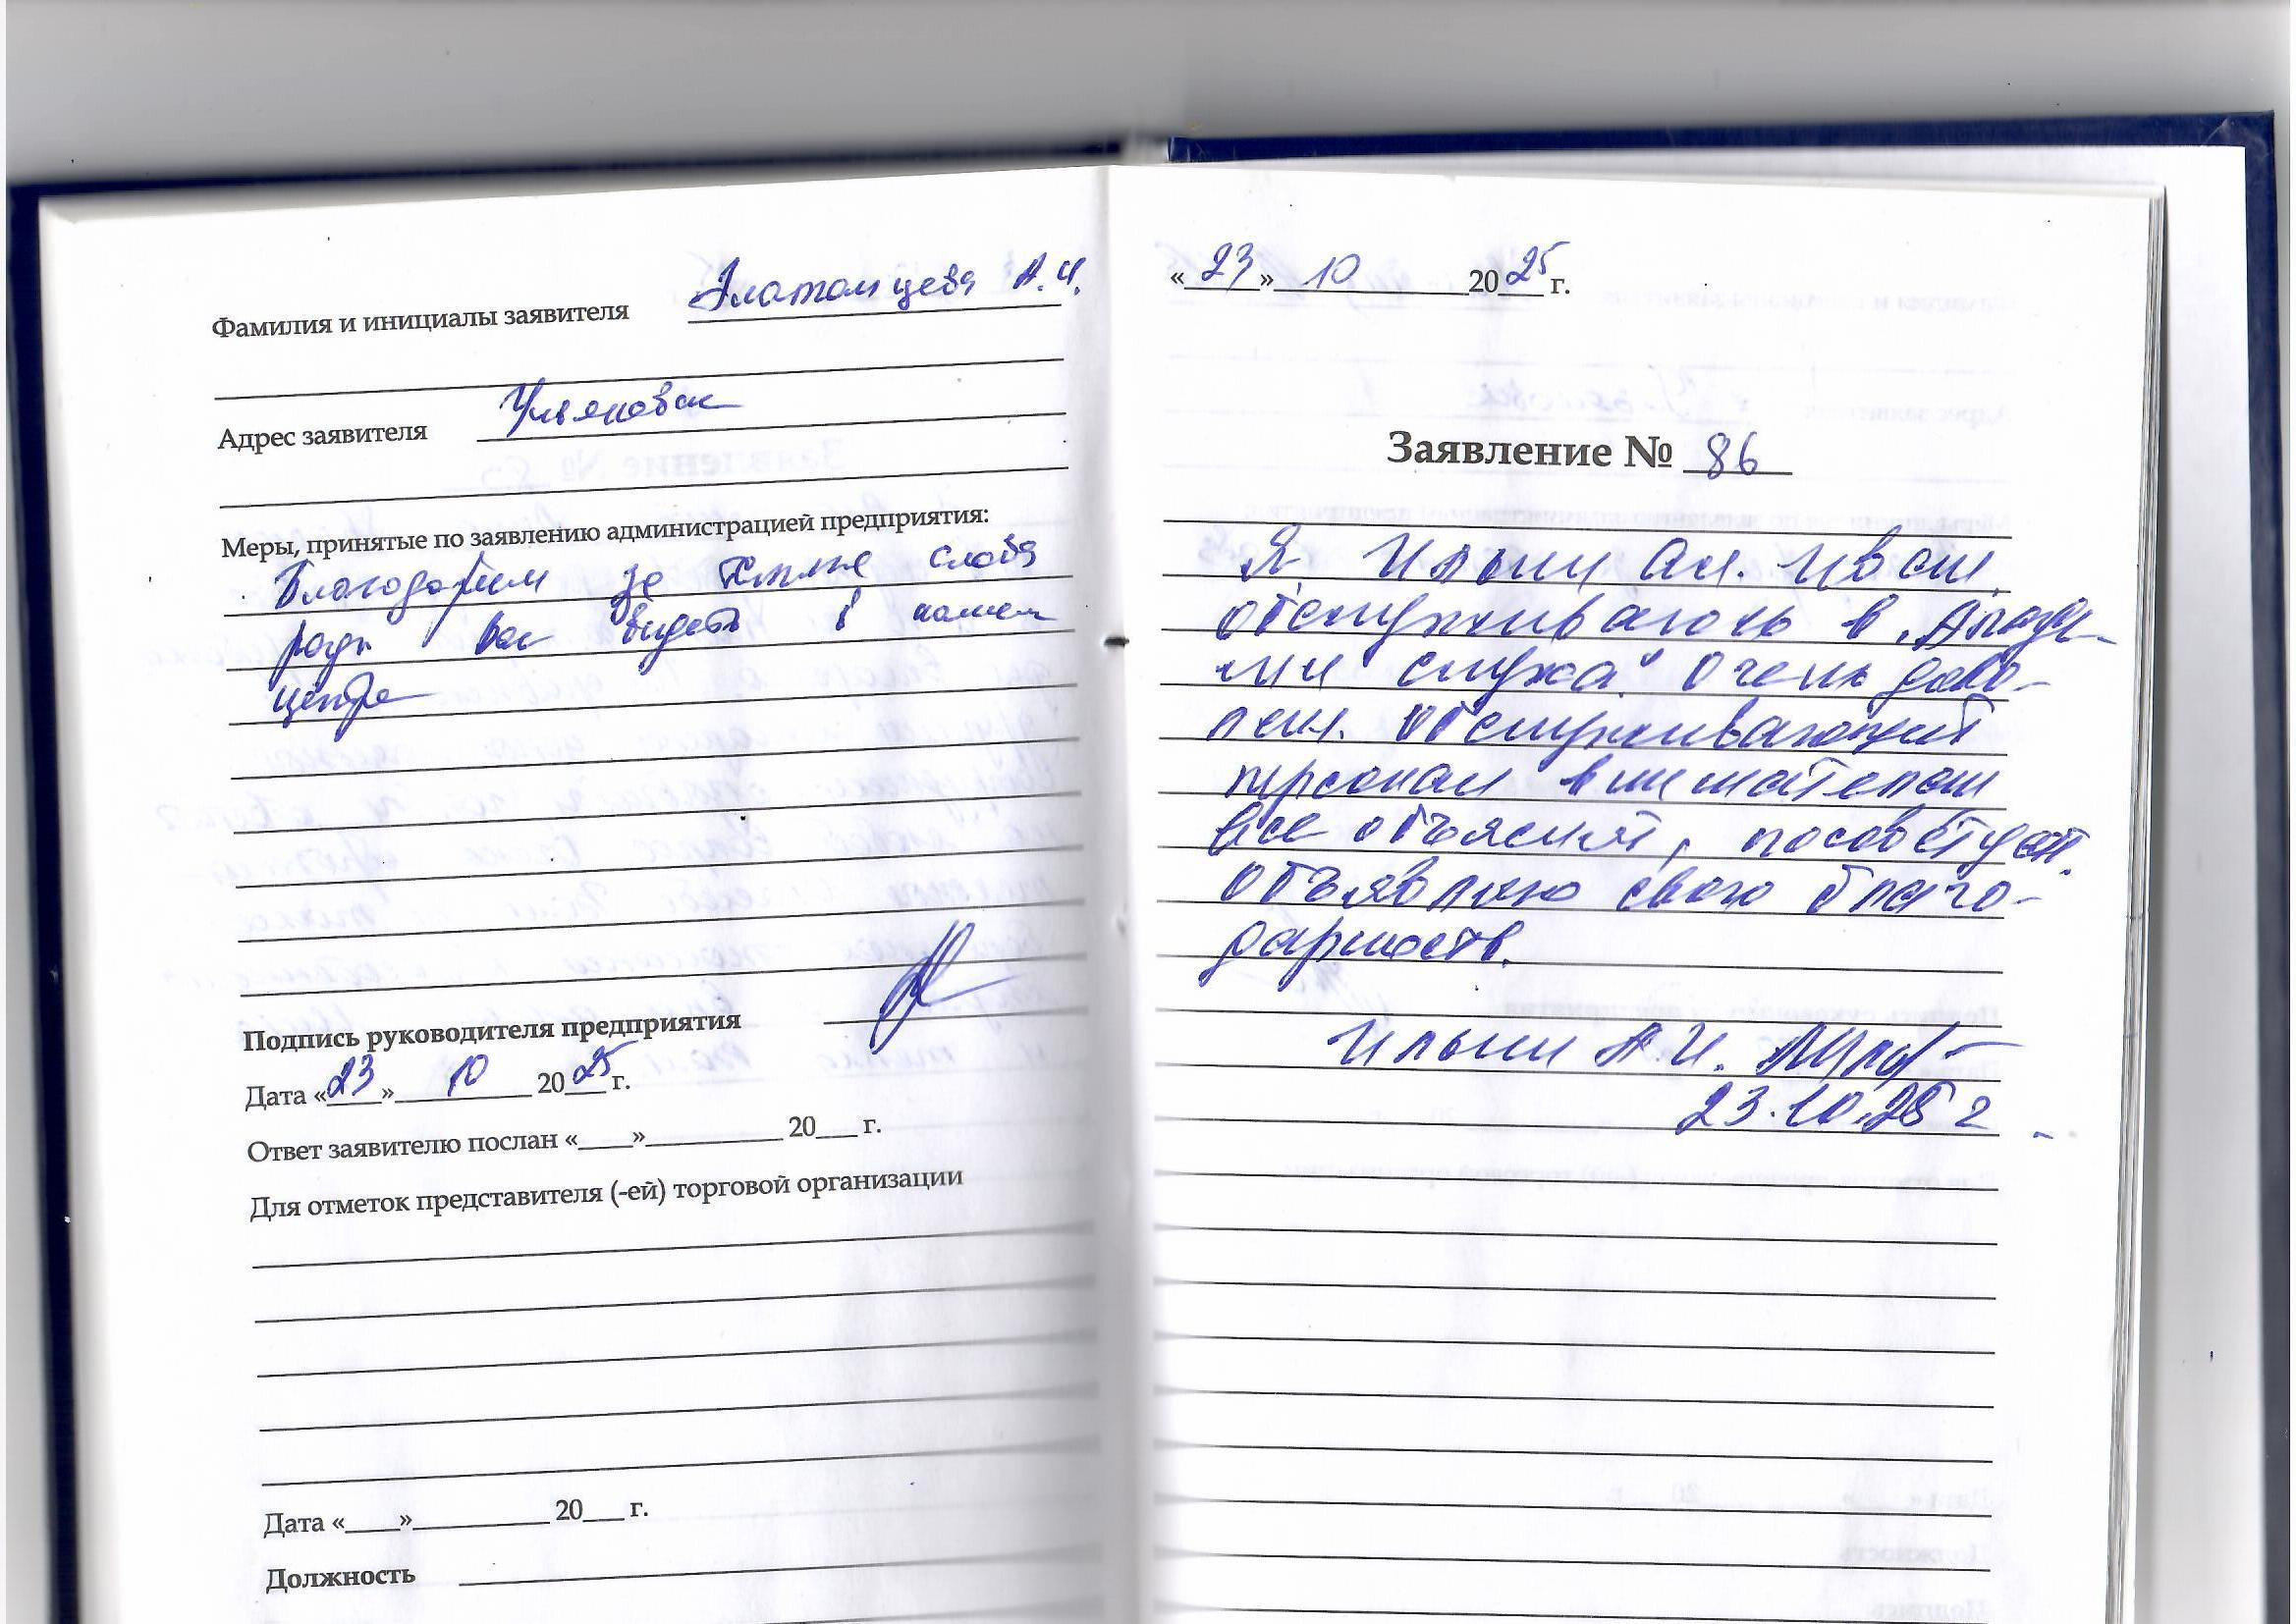 Фамилия и инициалы заявителя Златомцева А.И.
Адрес заявителя Ульяновск
Меры, принятые по заявлению администрацией предприятия:
Благодарим за тёплые слова
рады вас видеть в нашем
центре
Подпись руководителя предприятия
Дата «23» 10 2025 г.
Ответ заявителю послан «____»__________ 20___ г.
Для отметок представителя (-ей) торговой организации
Дата «____»__________ 20___ г.
Должность
«23» 10 2025 г.
Заявление № 86
Я Ильин Ал. Иван.
обслуживаюсь в „Акаде-
мии слуха" очень дово-
лен. Обслуживающий
персонал внимателен
все объяснит, посоветует.
Объявляю свою благо-
дарность.
Ильин А.И.
23.10.25 г.